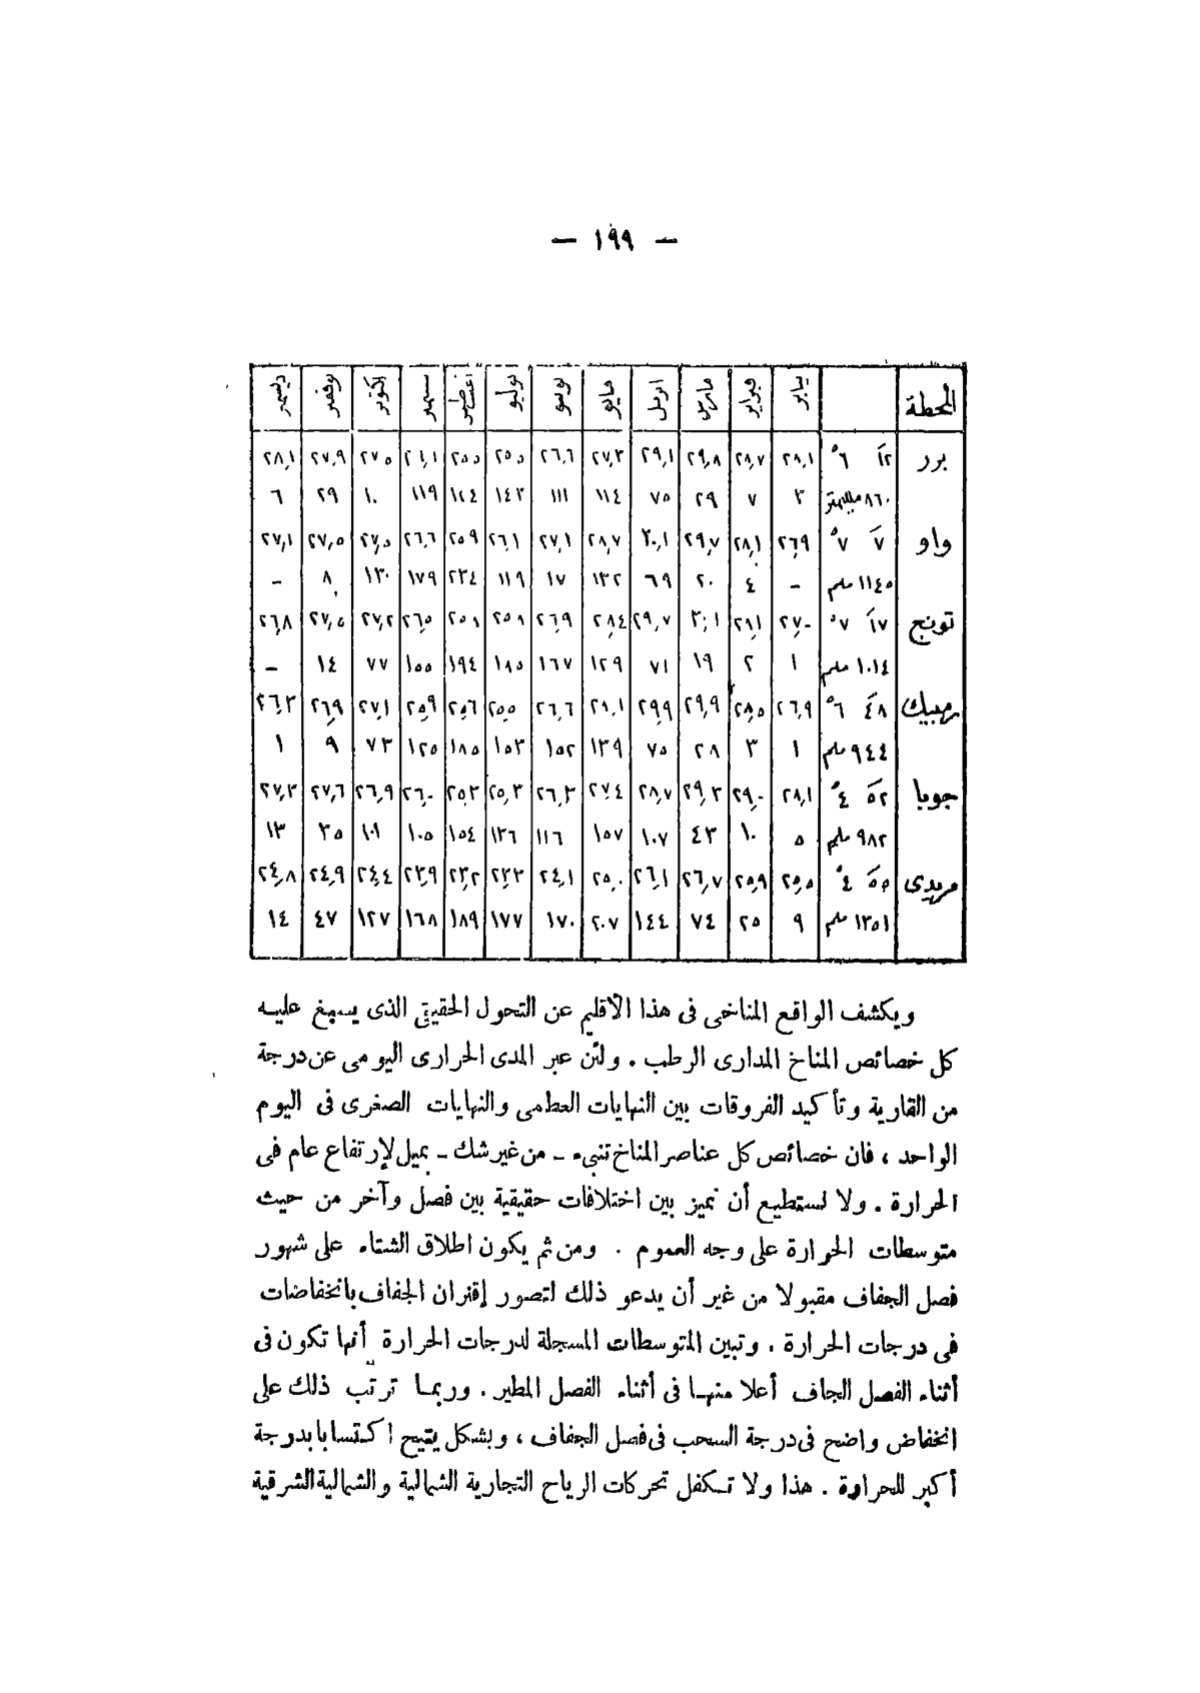 — ١٩٩ —
المحطة يناير فبراير مارس ابريل مايو يونيو يوليو اغسطس سبتمبر اكتوبر نوفمبر ديسمبر
بور ١٢َ ٦° ٢٨,١ ٢٨,٧ ٢٩,٨ ٢٩,١ ٢٧,٣ ٢٦,٦ ٢٥,٥ ٢٥,٥ ٢٦,١ ٢٧,٥ ٢٧,٩ ٢٨,١
٨٦٠ ملليمتر ٣ ٧ ٢٩ ٧٥ ١١٤ ١١١ ١٤٣ ١٤٤ ١١٩ ١٠ ٢٩ ٦
واو ٧َ ٧° ٢٦,٩ ٢٨,١ ٢٩,٧ ٣٠,١ ٢٨,٧ ٢٧,١ ٢٦,١ ٢٥,٩ ٢٦,٦ ٢٧,٥ ٢٧,٥ ٢٧,١
١١٤٥ ملم – ٤ ٢٠ ٦٩ ١٣٢ ١٧ ١١٩ ٢٣٤ ١٧٩ ١٣٠ ٨ –
تونج ١٧َ ٧° ٢٧,٠ ٢٩,١ ٣٠,١ ٢٩,٧ ٢٨,٤ ٢٦,٩ ٢٥,٨ ٢٥,٨ ٢٦,٥ ٢٧,٢ ٢٧,٥ ٢٦,٨
١٠١٤ ملم ١ ٢ ١٩ ٧١ ١٢٩ ١٦٧ ١٨٥ ١٩٤ ١٥٥ ٧٧ ١٤ –
رمبيك ٤٨َ ٦° ٢٦,٩ ٢٨,٥ ٢٩,٩ ٢٩,٩ ٢٨,١ ٢٦,٦ ٢٥,٥ ٢٥,٦ ٢٥,٩ ٢٧,١ ٢٦,٩ ٢٦,٣
٩٤٤ ملم ١ ٣ ٢٨ ٧٥ ١٣٩ ١٥٢ ١٥٣ ١٨٥ ١٢٥ ٧٣ ٩ ١
جوبا ٥٢َ ٤° ٢٨,١ ٢٩,٠ ٢٩,٣ ٢٨,٧ ٢٧,٤ ٢٦,٣ ٢٥,٣ ٢٥,٣ ٢٦,٠ ٢٦,٩ ٢٧,٦ ٢٧,٣
٩٨٢ ملم ٥ ١٠ ٤٣ ١٠٧ ١٥٧ ١١٦ ١٣٦ ١٥٤ ١٠٥ ١٠١ ٣٥ ١٣
مريدى ٥٥َ ٤° ٢٥,٥ ٢٥,٩ ٢٦,٧ ٢٦,١ ٢٥,٠ ٢٤,١ ٢٣,٣ ٢٣,٢ ٢٣,٩ ٢٤,٤ ٢٤,٩ ٢٤,٨
١٣٥١ ملم ٩ ٢٥ ٧٤ ١٤٤ ٢٠٧ ١٧٠ ١٧٧ ١٨٩ ١٦٨ ١٢٧ ٤٧ ١٤
ويكشف الواقع المناخى فى هذا الأقليم عن التحول الحقيقى الذى يسبغ عليه
كل خصائص المناخ المدارى الرطب . ولئن عبر المدى الحرارى اليومى عن درجة
من القارية وتأكيد الفروقات بين النهايات العطمى والنهايات الصغرى فى اليوم
الواحد ، فان خصائص كل عناصر المناخ تنبىء – من غير شك – بميل لإرتفاع عام فى
الحرارة . ولا نستطيع أن نميز بين اختلافات حقيقية بين فصل وآخر من حيث
متوسطات الحرارة على وجه العموم . ومن ثم يكون اطلاق الشتاء على شهور
فصل الجفاف مقبولا من غير أن يدعو ذلك لتصور إقتران الجفاف بانخفاضات
فى درجات الحرارة . وتبين المتوسطات المسجلة لدرجات الحرارة أنها تكون فى
أثناء الفصل الجاف أعلا منها فى أثناء الفصل المطير . وربما ترتب ذلك على
انخفاض واضح فى درجة السحب فى فصل الجفاف ، وبشكل يتيح اكتسابا بدرجة
أكبر للحرارة . هذا ولا تكفل تحركات الرياح التجارية الشمالية والشمالية الشرقية